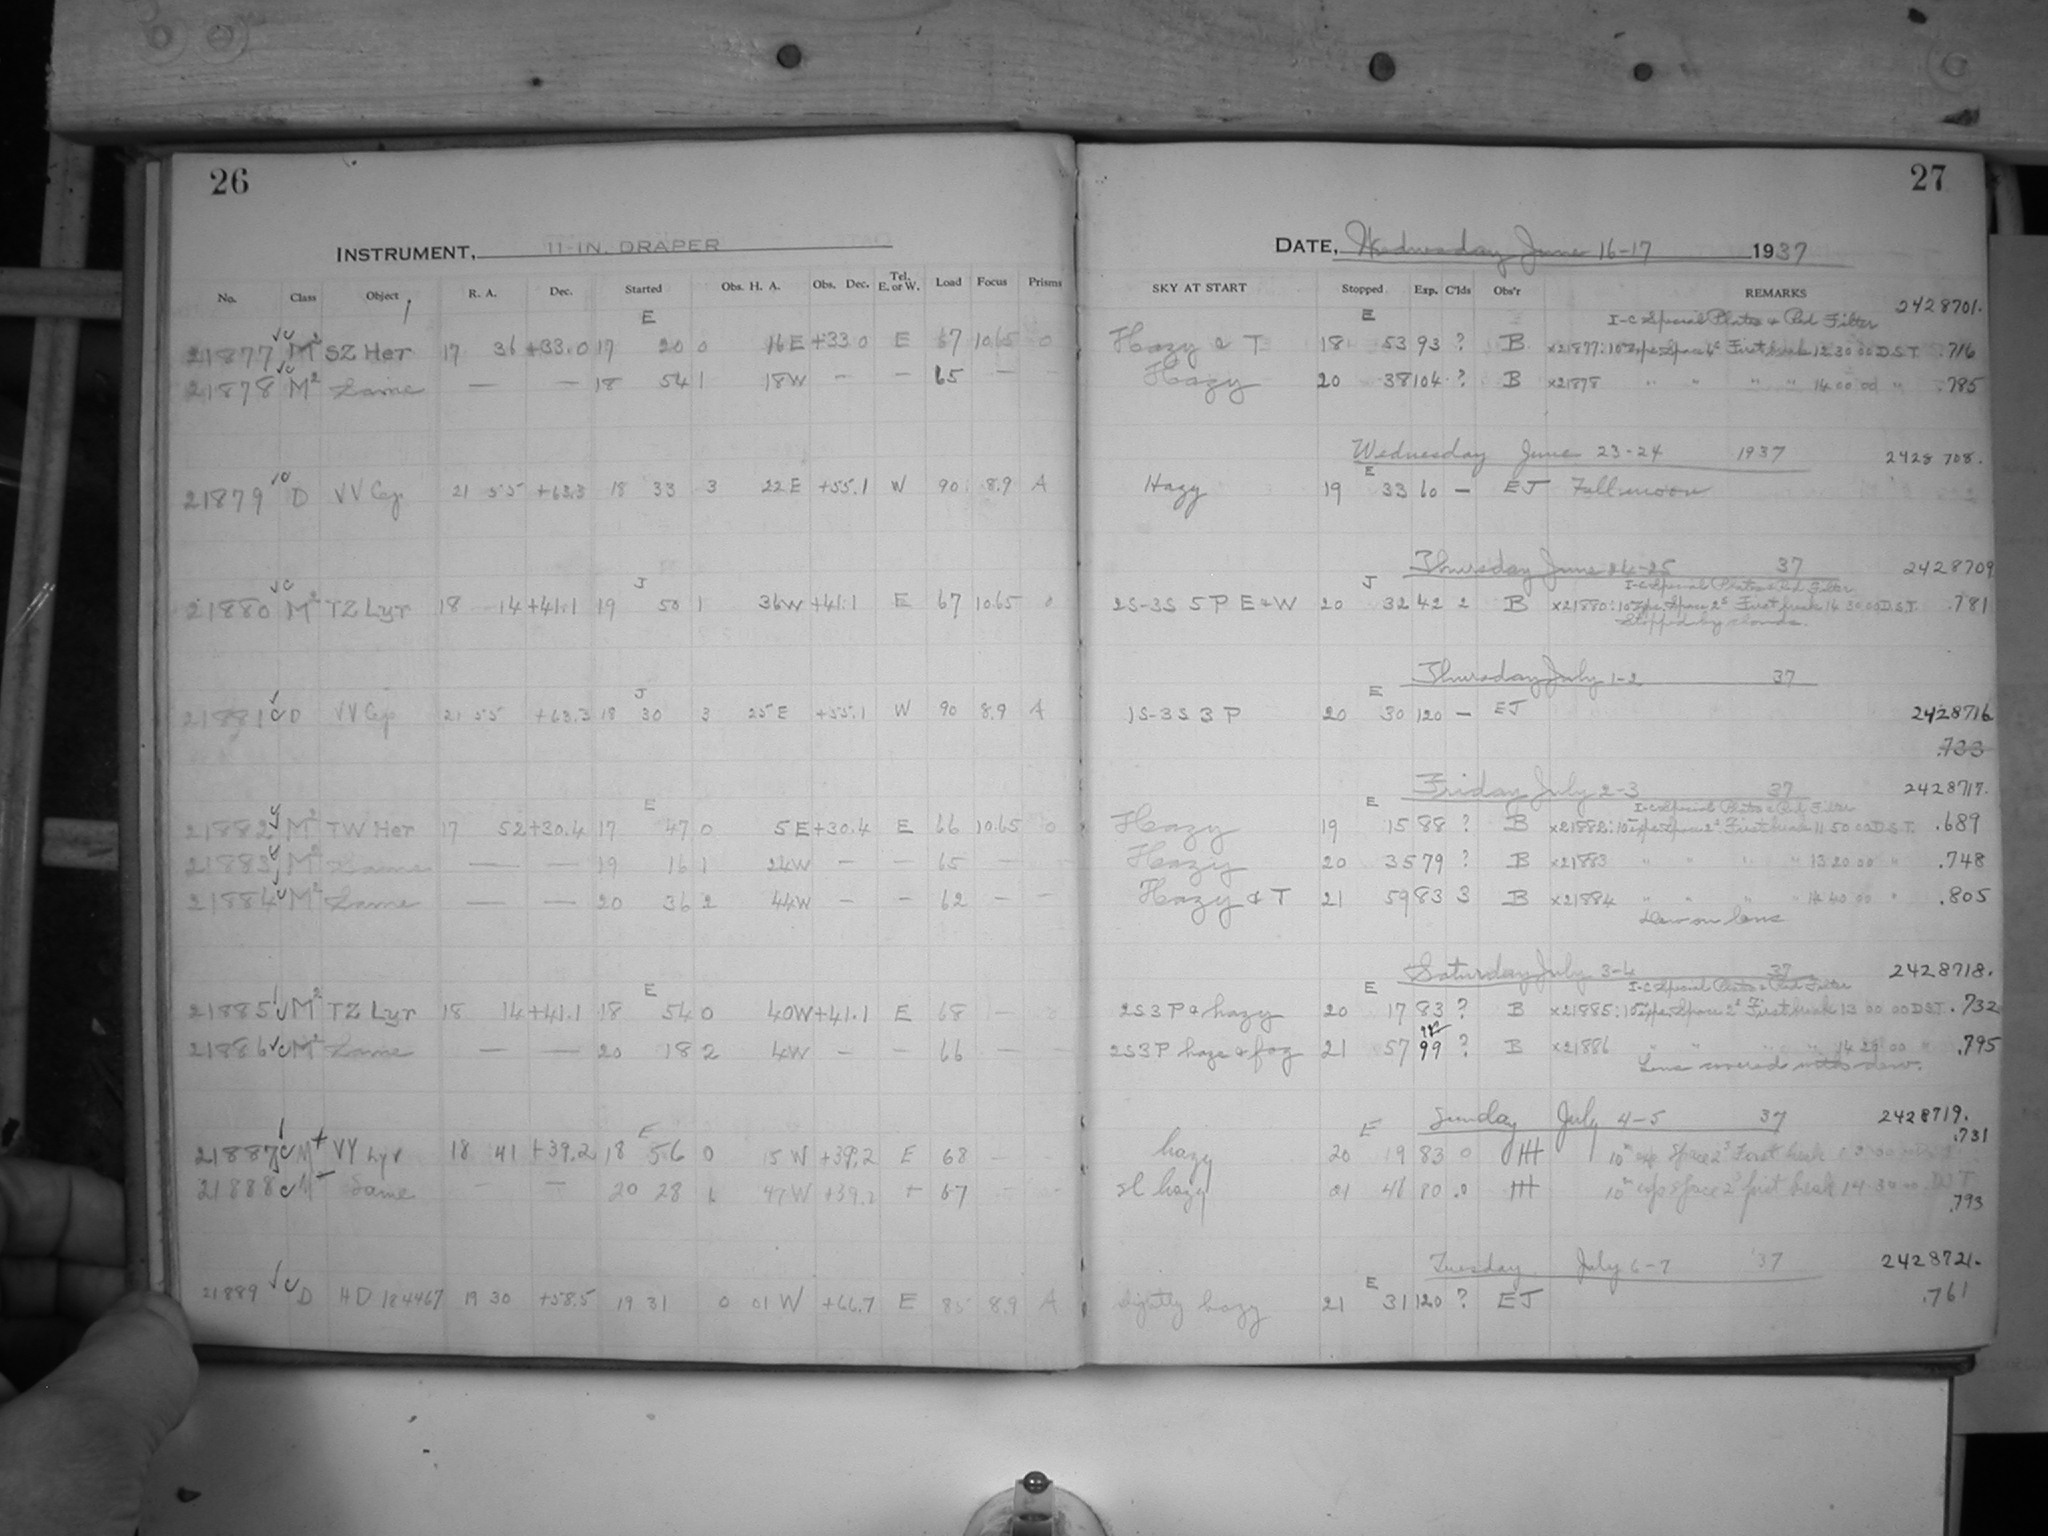 26
INSTRUMENT, 11-IN. DRAPER
No. Class Object R. A. Dec. Started Obs. H. A. Obs. Dec. Tel. E. or W. Load Focus Prisms
E
21877 M² SZ Her 17 36 +33.0 17 20 0 16 E +33.0 E 67 10.65 0
21878 M² Same — — 18 54 1 18 W – – 65
21879 D VV Cep 21 55 +63.3 18 33 3 22 E +55.1 W 90 8.9 A
J
21880 M² TZ Lyr 18 14 +41.1 19 50 1 36 W +41.1 E 67 10.65 0
J
21881 D VV Cep 21 55 +63.3 18 30 3 25 E +55.1 W 90 8.9 A
E
21882 M² TW Her 17 52 +30.4 17 47 0 5 E +30.4 E 66 10.65 0
21883 M² Same — — 19 16 1 24 W – – 65 – –
21884 M² Same — — 20 36 2 44 W – – 62 – –
E
21885 M² TZ Lyr 18 14 +41.1 18 54 0 40 W +41.1 E 68 –
21886 M² Same – – 20 18 2 4 W – – 66 – –
E
21887 M VY Lyr 18 41 +39.2 18 56 0 15 W +39.2 E 68 – –
21888 M Same – – 20 28 1 47 W +39.2 + 67 – –
21889 D HD 184467 19 30 +58.5 19 31 0 01 W +66.7 E 85 8.9 A
27
DATE, Wednesday June 16-17 1937
SKY AT START Stopped Exp. C'lds Obs'r REMARKS 2428701.
E I-C Special Plates & Red Filter
Hazy & T 18 53 93 ? B x21877: 10 exp. Space First break 12 30 00 D.S.T. .716
Hazy 20 38 104 ? B x21878 " " " " 14 00 00 " .785
Wednesday June 23-24 1937 2428 708.
E
Hazy 19 33 60 – EJ Full moon
Thursday June 24-25 37 2428709
J I-C Special Plates & Red Filter
2S-3S 5P E & W 20 32 42 2 B x21880: 10 exp. Space 2ˢ First break 14 30 00 D.S.T. .781
Stopped by clouds.
Thursday July 1-2 37
E
1S-3S 3P 20 30 120 – EJ 2428716
.733
Friday July 2-3 37 2428717.
E I-C Special Plates & Red Filter
Hazy 19 15 88 ? B x21882: 10 exp. Space 2ˢ First break 11 50 00 D.S.T. .689
Hazy 20 35 79 ? B x21883 " " " " 13 20 00 " .748
Hazy & T 21 59 83 3 B x21884 " " " " 14 40 00 " .805
Dew on lens
Saturday July 3-4 37 2428718.
E I-C Special Plates & Red Filter
2S 3P & hazy 20 17 83 ? B x21885: 10 exp. Space 2ˢ First break 13 00 00 D.S.T. .732
2S3P haze & fog 21 57 99 ? B x21886 " " " " 14 29 00 " .795
Lens covered with dew.
Sunday July 4-5 37 2428719.
E .731
hazy 20 19 83 0 HH 10 exp Space 2ˢ First break
sl hazy 21 48 80 .0 HH 10 exp Space 2 first break 14 30 00 DST
.793
Tuesday July 6-7 '37 2428721.
E
slightly hazy 21 31 120 ? EJ .761